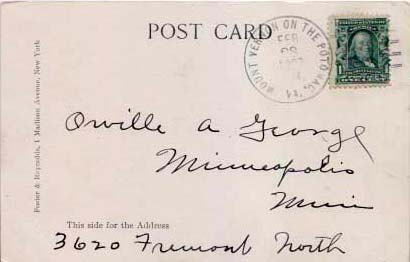 POST CARD
MOUNT VERNON ON THE POTOMAC, VA.
FEB
28
1
Foster & Reynolds, 1 Madison Avenue, New York
Orville A George
Minneapolis
Minn
This side for the Address
3620 Fremont North